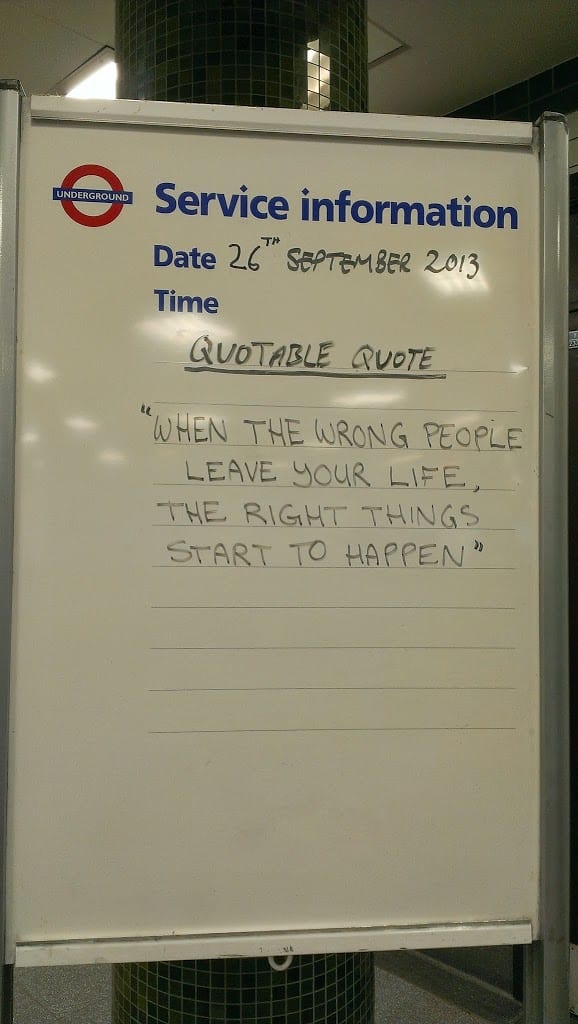 UNDERGROUND
Service information
Date 26TH SEPTEMBER 2013
Time
QUOTABLE QUOTE
"WHEN THE WRONG PEOPLE
LEAVE YOUR LIFE,
THE RIGHT THINGS
START TO HAPPEN"